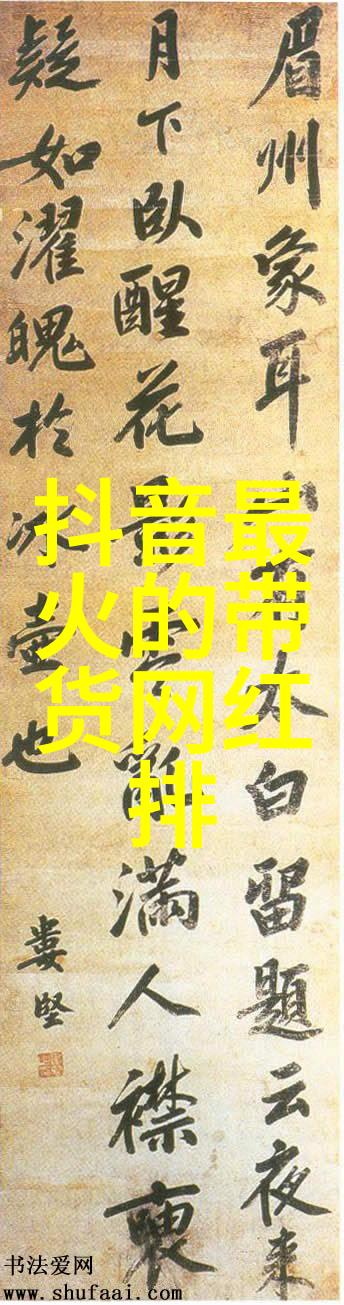 眉州象耳太白留題云夜来
月下臥醒花亂滿人襟
疑如濯魄於冰壺也
婁堅
抖音最
火的带
货网红
排
书法爱网
www.shufaai.com